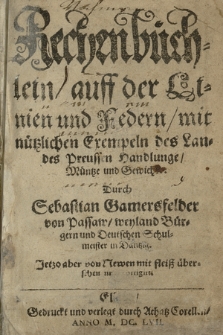 Rechenbüch-
lein/ auff der Li-
nien und Federn/ mit
nützlichen Exempeln des Lan-
des Preussen Handlunge/
Müntze und Gewich
Durch
Sebastian Gamersfelder
von Passaw/ weyland Bür-
gern und Deutschen Schul-
meister in Dantzig.
Jetzo aber von Newen mit fleiß über-
sehen
Gedruckt und verlegt durch Achatz Corell
ANNO M. DC. LVII.